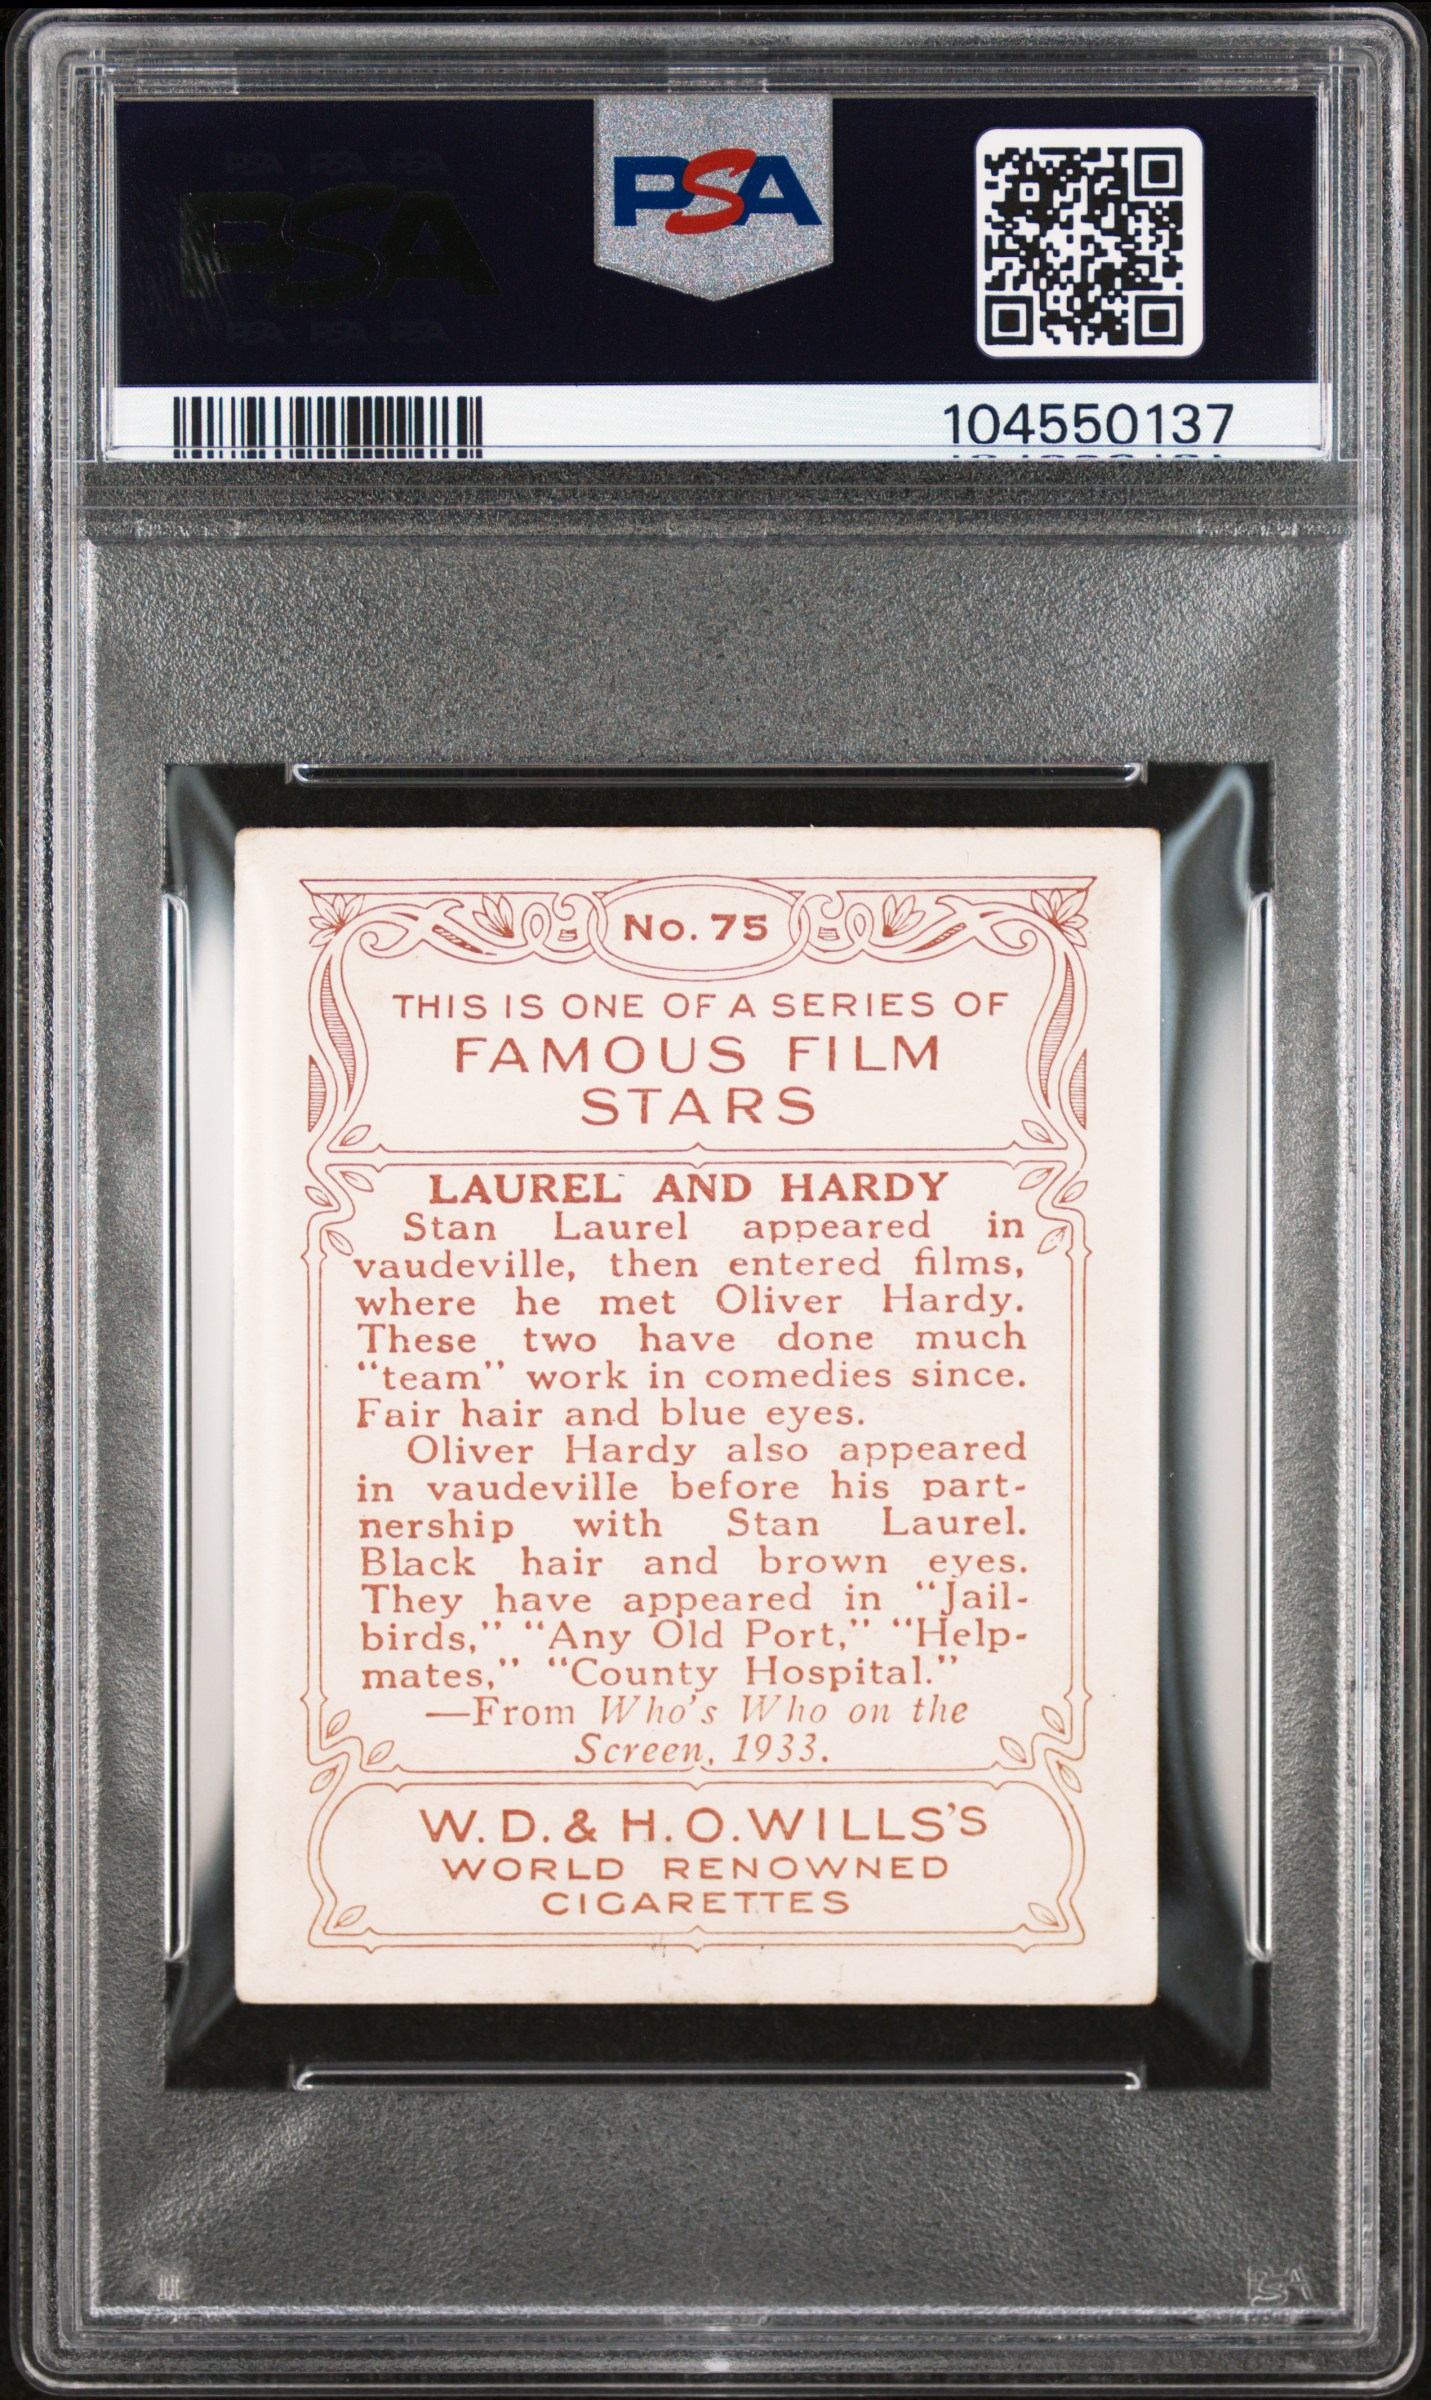 PSA PSA PSA
PSA
PSA PSA PSA
PSA
104550137
No. 75
THIS IS ONE OF A SERIES OF
FAMOUS FILM
STARS
LAUREL AND HARDY
Stan Laurel appeared in
vaudeville, then entered films,
where he met Oliver Hardy.
These two have done much
“team” work in comedies since.
Fair hair and blue eyes.
Oliver Hardy also appeared
in vaudeville before his part-
nership with Stan Laurel.
Black hair and brown eyes.
They have appeared in “Jail-
birds,” “Any Old Port,” “Help-
mates,” “County Hospital.”
—From Who’s Who on the
Screen, 1933.
W. D. & H. O. WILLS’S
WORLD RENOWNED
CIGARETTES
PSA